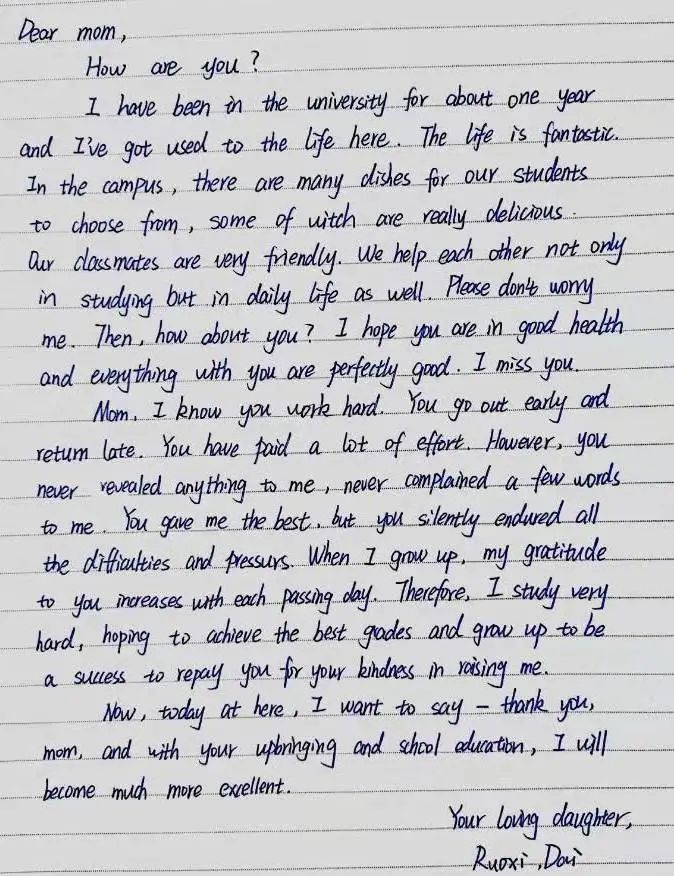 Dear mom,
How are you?
I have been in the university for about one year
and I've got used to the life here. The life is fantastic.
In the campus, there are many dishes for our students
to choose from, some of witch are really delicious.
Our classmates are very friendly. We help each other not only
in studying but in daily life as well. Please don't worry
me. Then, how about you? I hope you are in good health
and everything with you are perfectly good. I miss you.
Mom, I know you work hard. You go out early and
return late. You have paid a lot of effort. However, you
never revealed anything to me, never complained a few words
to me. You gave me the best, but you silently endured all
the difficulties and pressurs. When I grow up, my gratitude
to you increases with each passing day. Therefore, I study very
hard, hoping to achieve the best grades and grow up to be
a success to repay you for your kindness in raising me.
Now, today at here, I want to say - thank you,
mom, and with your upbringing and school education, I will
become much more excellent.
Your loving daughter,
Ruoxi, Dai